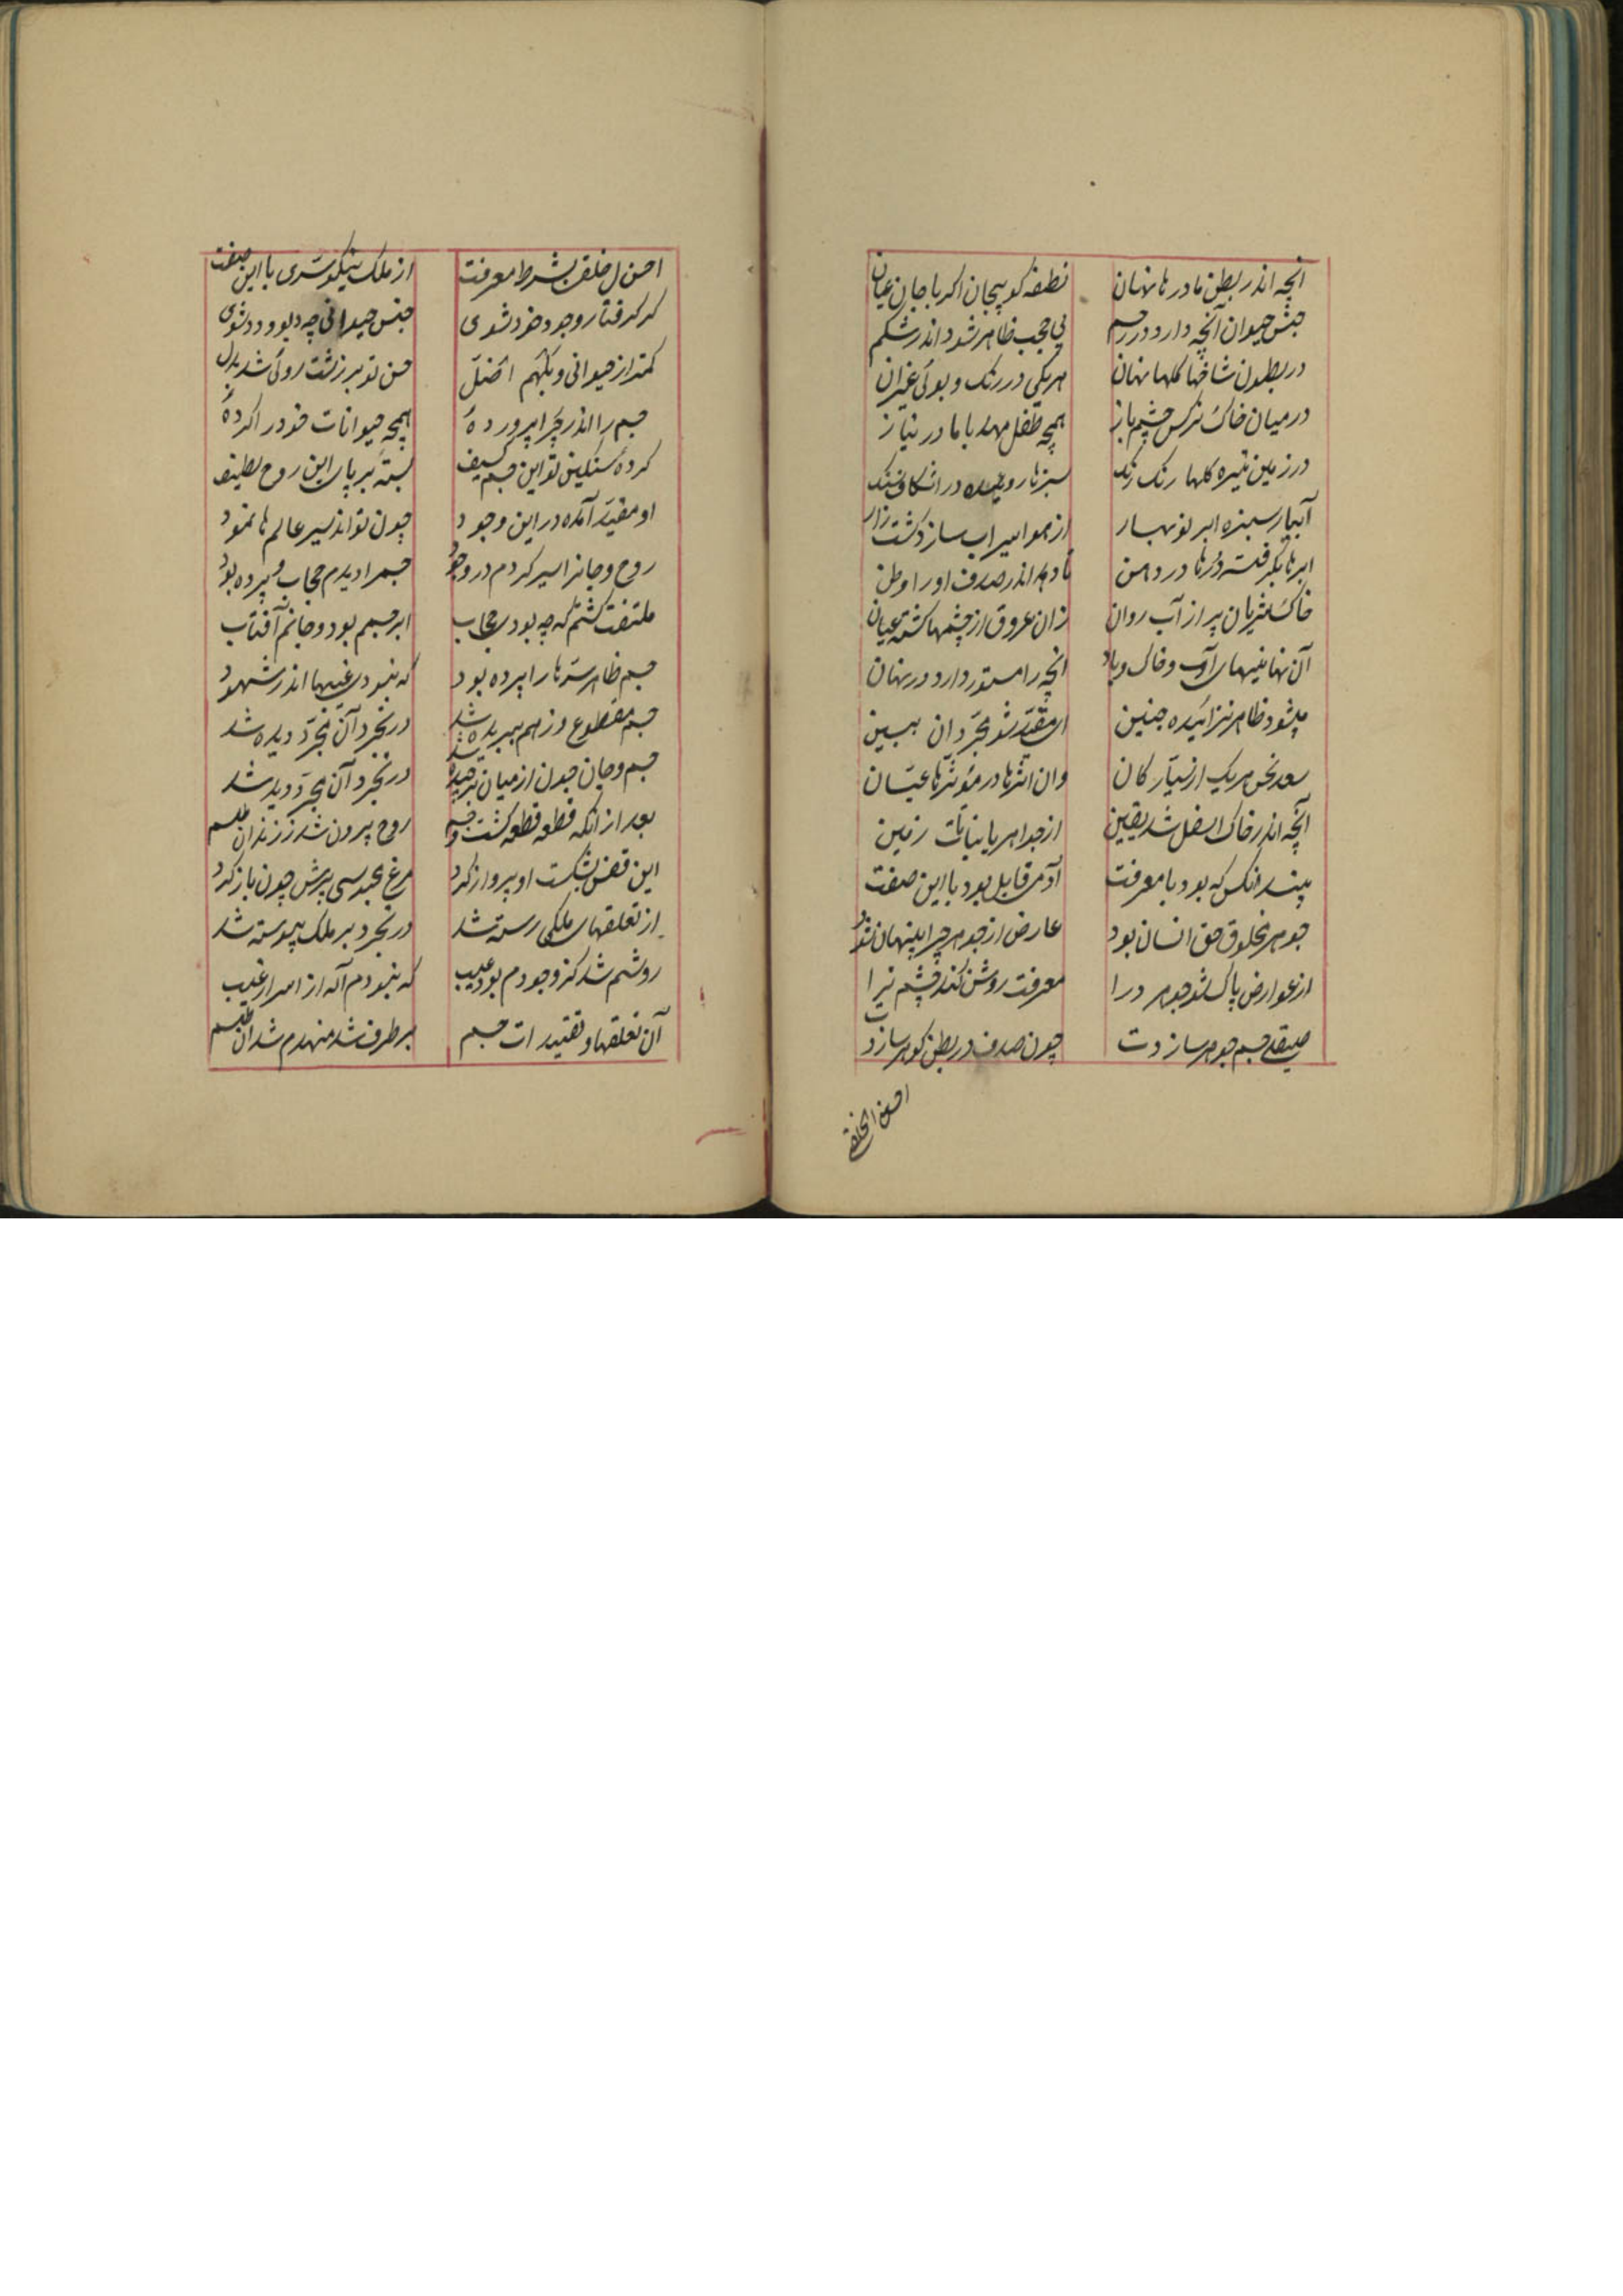 انچه اندر بطن مادرها نهان
نطفه کو بیجان اکر باجان عیان
جنس حیوان آنچه دارد در رحم
بی حجب ظاهر شود اندر شکم
در بطون شاخها کلها نهان
هریکی در رنک و بوئی
در میان خاک نرکس چشم باز
همچه طفل مهد با مادر نیاز
در زمین تیره کلها رنک رنک
سبزها روییده در اشکاف سنک
آبیار سبزه ابر نوبهار
از هوا سیراب سازد کشت زار
ابرها بکرفته درها در دهن
تا دهد اندر صدف او را وطن
خاک شریان پر از آب روان
زان عروق از چشمها کشته عیان
آن نهانیهای آب و خاک و باد
انچه را مستور دارد در نهان
میشود ظاهر چنین
ای مقید شو مجرد ان ببین
سعد نحس هریک از سیارکان
وان اثرها در مؤثرها عیان
آنچه اندر خاک اسفل شد یقین
از جواهر یا نباتات زمین
بیند انکس که بود با معرفت
آدمی قابل بود با این صفت
جوهر مخلوق حق انسان بود
عارض از جوهر چرا پنهان شود
از عوارض پاک شو جوهر درا
معرفت روشن کند چشم ترا
صیقلی جسم جوهر سازدت
چون صدف در بطن کوهر سازدت
احسن الخلقی
احسن ال خلقی بشرط معرفت
از ملک نیکوتری با این صفت
کر کرفتار وجود خود شوی
جنس حیوانی چه دیو و دد شوی
کمتر از حیوانی و بلهم اضل
حسن تو بر زشت روئی شد بدل
جسم را اندر چرا پروردهٔ
همچه حیوانات خود را کردهٔ
کردهٔ سنکین تو این جسم کسیف
بستهٔ بر پای این روح لطیف
او مقید آمده در این وجود
چون تواند سیر عالم ها نمود
روح و جانرا سیر کردم در وجود
جسم را دیدم حجاب و پرده بود
ملتفت کشتم که چه بودی حجاب
ابر جسم بود و جانم آفتاب
جسم ظاهر سترها را پرده بود
که نبودی غیبها اندر شهود
جسم مقطوع و زهم ببریده شد
در تجرد آن مجرد دیده شد
جسم و جان چون از میان برچیده شد
در تجرد آن مجرد دیده شد
بعد از انکه قطعه قطعه کشت جسم
روح بیرون شد ز زندان طلسم
این قفس بشکست او پرواز کرد
مرغ محبسی پرش چون باز کرد
از تعلقهای ملکی رسته شد
در تجرد بر ملک پیوسته شد
روشنم شد کز وجودم بود عیب
که نبودم آکه از اسرار غیب
آن تعلقها و تقیدات جسم
برطرف شد منهدم شد ان طلسم